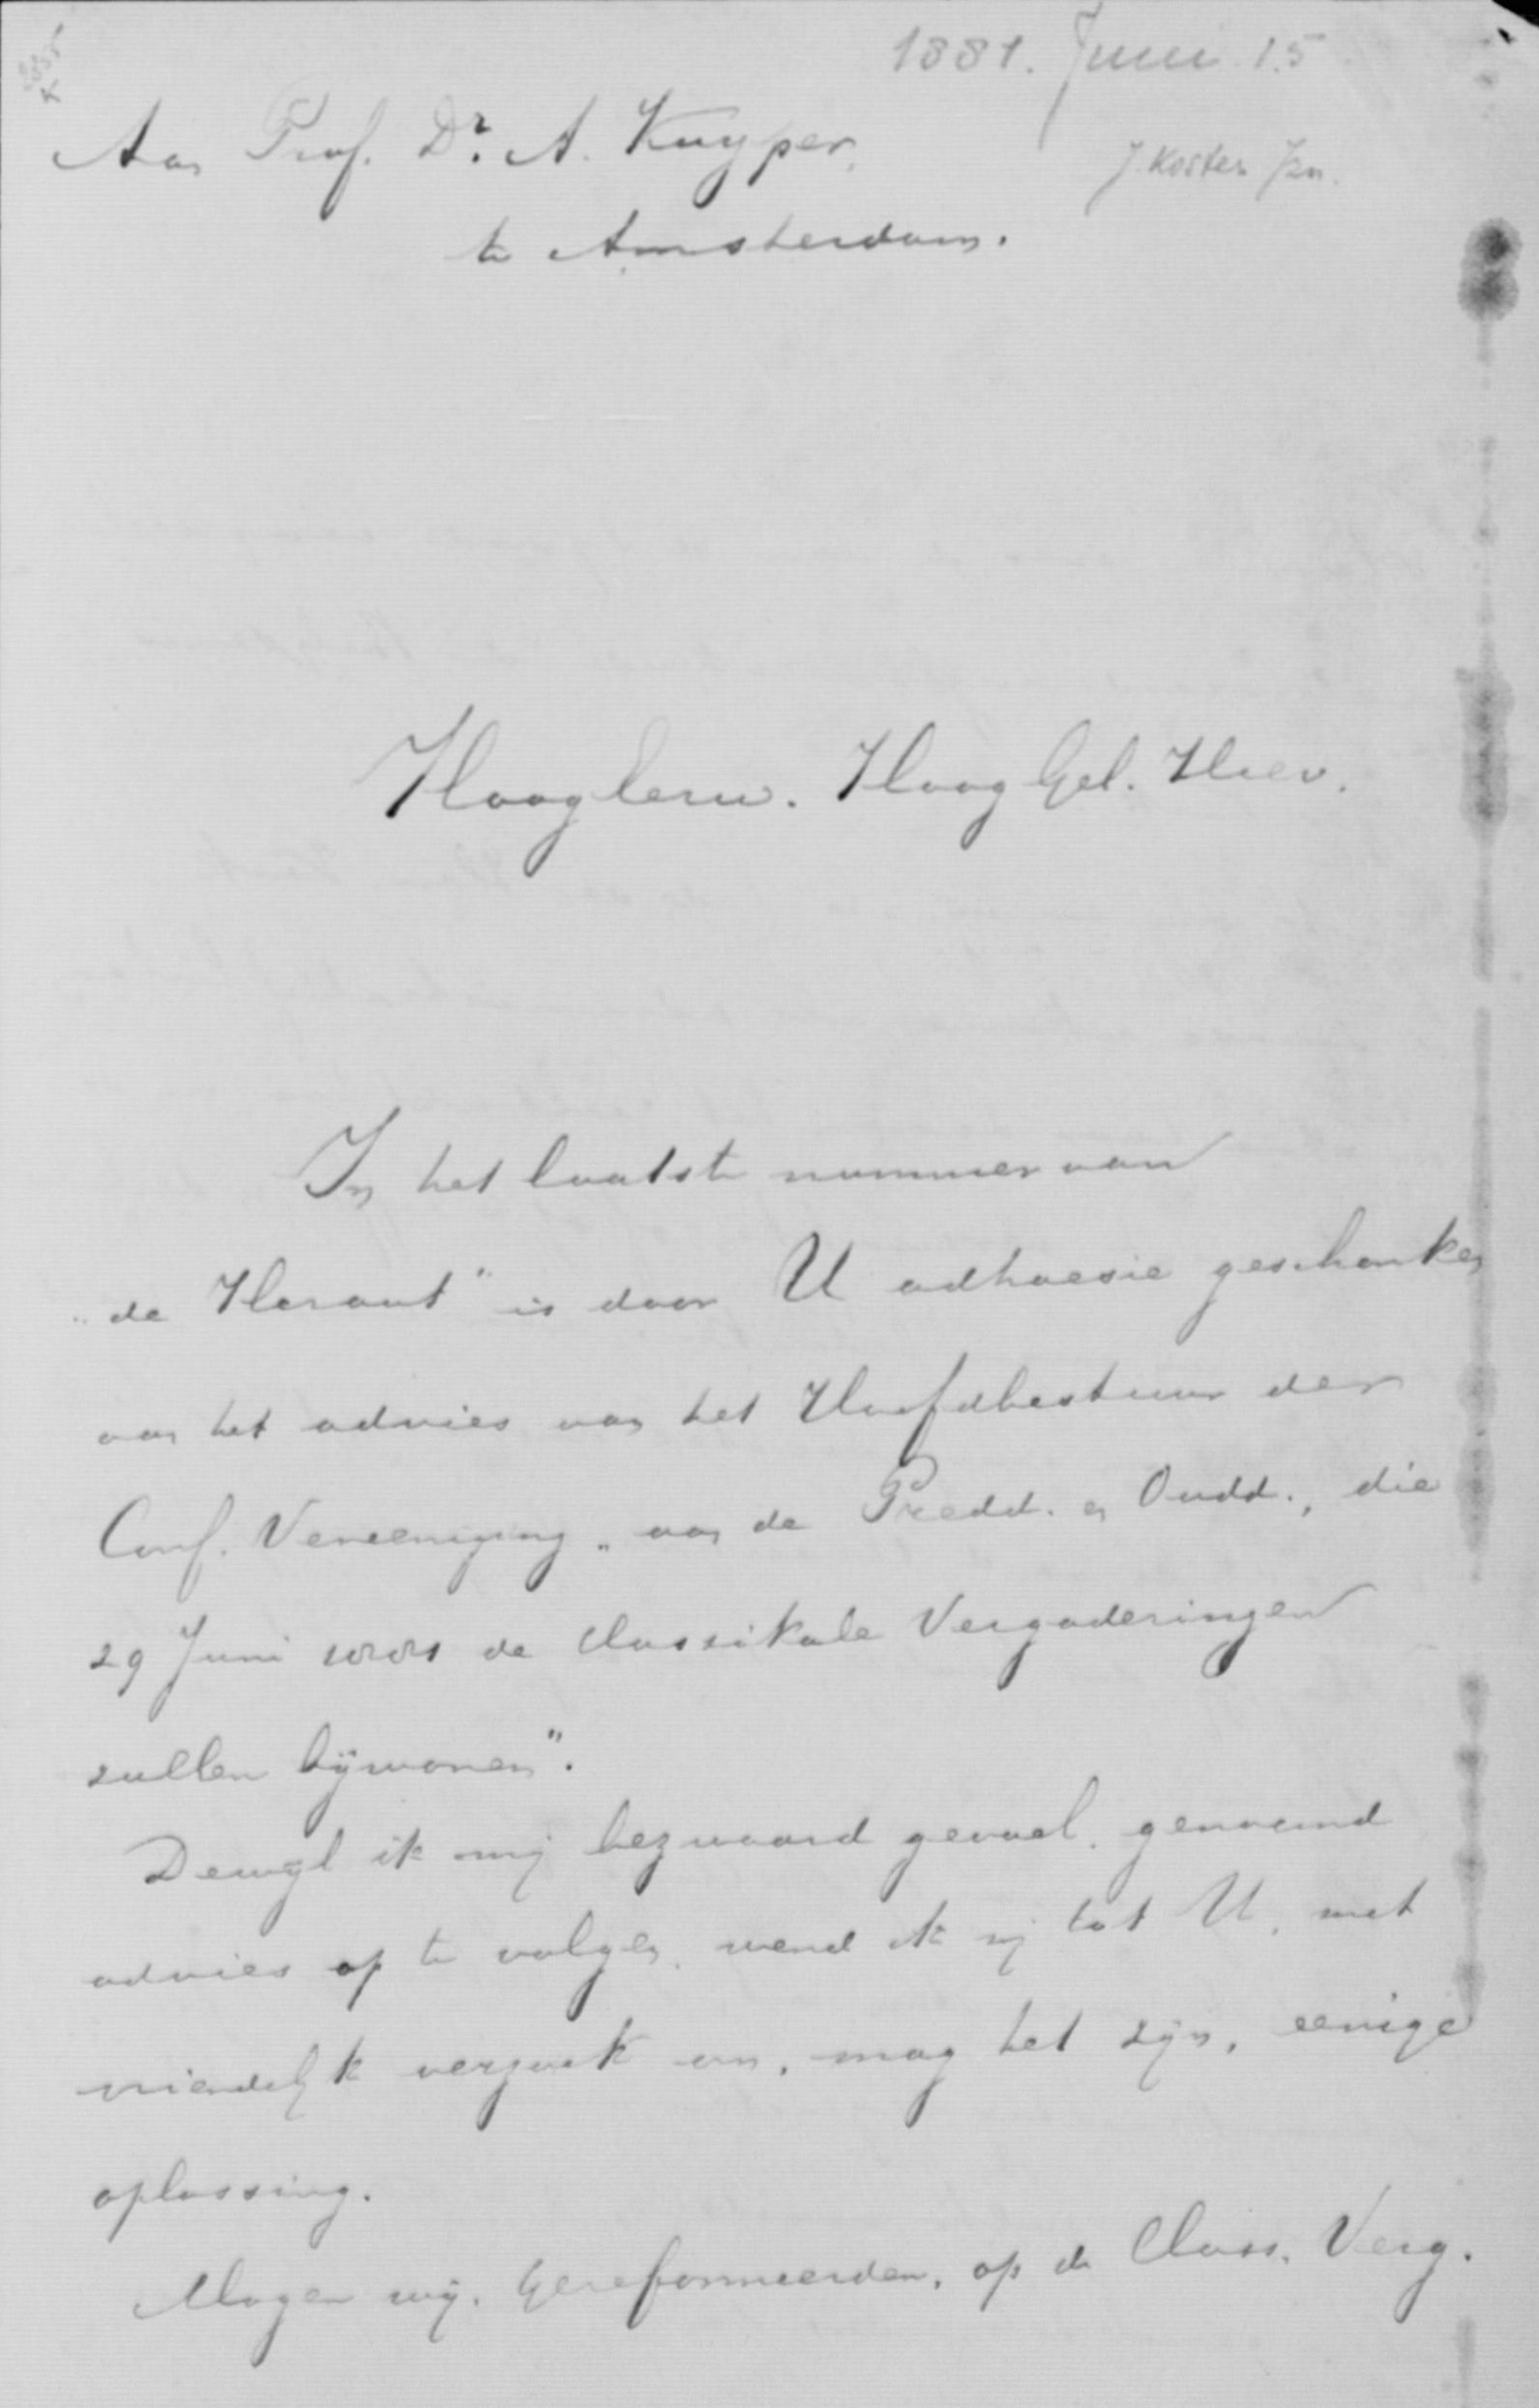 1881. Juni 15
Aan Prof. Dr. A. Kuyper,
J. Koster Jzn.
te Amsterdam.
Hoogleerw. Hoog Gel. Heer.
In het laatste nummer van
"de Heraut" is door U adhaesie geschonken
aan het advies van het Hoofdbestuur der
Conf. Vereeniging "aan de Predd. en Oudd., die
29 Juni 1881 de Classikale Vergaderingen
zullen bijwonen".
Dewijl ik mij bezwaard gevoel, genoemd
advies op te volgen, wend ik mij tot U, met
vriendelijk verzoek om, mag het zijn, eenige
oplossing.
Mogen wij, Gereformeerden, op de Class. Verg.